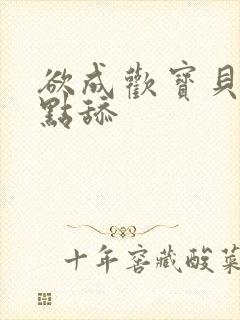 欲成歡寶貝
點舔
十年窖藏酸菜